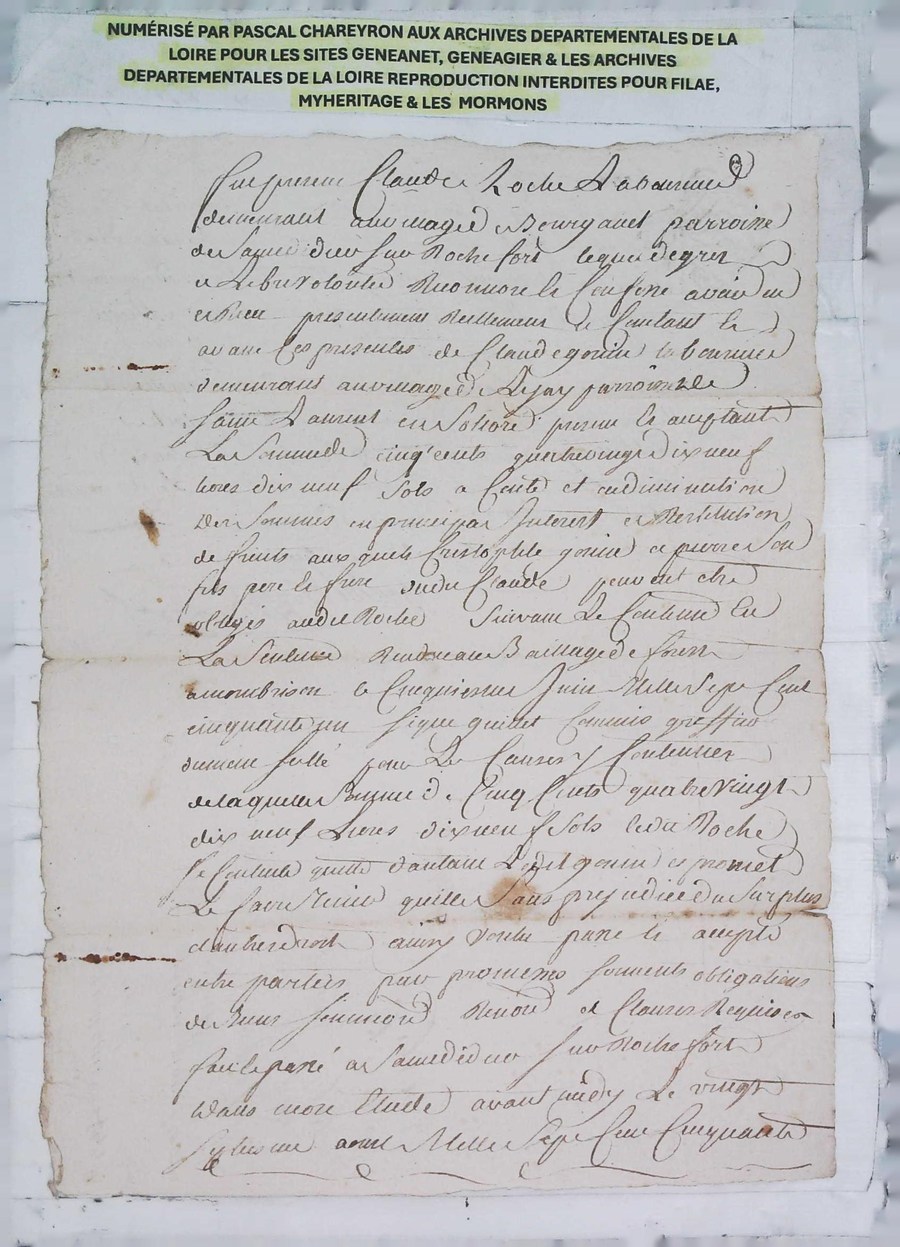 NUMÉRISÉ PAR PASCAL CHAREYRON AUX ARCHIVES DEPARTEMENTALES DE LA
LOIRE POUR LES SITES GENEANET, GENEAGIER & LES ARCHIVES
DEPARTEMENTALES DE LA LOIRE REPRODUCTION INTERDITES POUR FILAE,
MYHERITAGE & LES MORMONS
Fut present Claude Roche Laboureur
demeurant au village de parroisse
de sur Rochefort lequel de gré
et Libre Volonté Reconnoit et Confesse avoir eu
et Receu presentement Reellement et Contant et
avant Ces presentes de Claude gonin laboureur
demeurant au village de parroisse de
Saint Laurent en Solore present et acceptant
La Somme de cinq cents quatre vingt dix neuf
livres dix neuf Sols a Conte et en diminution
Des Sommes en principal Interest et Restitution
de fruits aux quels Cristophle gonin et pierre Son
fils pere et frere dudit Claude peuvent etre
obligés audit Roche Suivant Le Contenu en
La Sentence Rendue au Baillage de forest
a monbrison le Cinquieme Juin Mille Sept Cent
cinquante un Signé Commis greffier
scellé pour Les Causes y Contenues
de laquelle Somme de Cinq Cents quatre Vingt
dix neuf Livres dix neuf Sols ledit Roche
Se Contente quitte d'autant Ledit gonin et promet
Le faire tenir quitte Sans prejudice du Surplus
d'autres droits ainsy Voulu passé et accepté
entre parties par promesses serments obligations
de Biens Renond et Clauses Requises
fait et passé a sur Rochefort
Dans mon Etude avant midy Le vingt
aoust Mille Sept Cent Cinquante